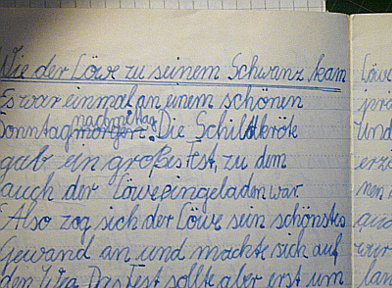 Wie der Löwe zu seinem Schwanz kam
Es war einmal an einem schönen
nachmittag
Sonntagmorgen. Die Schildkröte
gab ein großes Fest, zu dem
auch der Löwe eingeladen war.
Also zog sich der Löwe sein schönstes
Gewand an und machte sich auf
den Weg. Das Fest sollte aber erst um